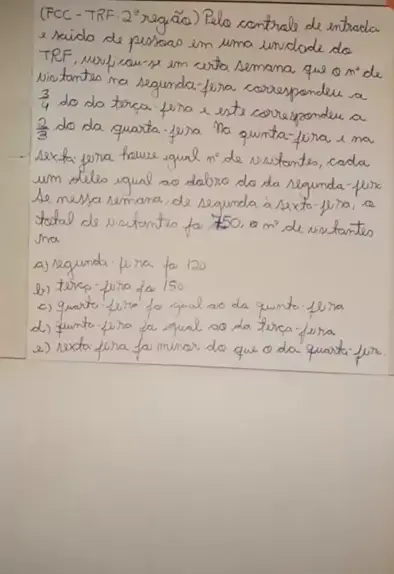 (FCC - TRF. 2ª região) Pelo controle de entrada
e saida de pessoas em uma unidade do
TRF, verificou-se em certa semana que o nº de
visitantes na segunda-feira correspondeu a
3/4 do da terça-feira e este correspondeu a
2/3 do da quarta-feira Na quinta-feira e na
sexta-feira houve igual nº de visitantes, cada
um deles igual ao dobro do da segunda-feira
Se nessa semana, de segunda à sexta-feira, o
total de visitantes foi 750, o nº de visitantes
na
a) segunda-feira foi 120
b) terça-feira foi 150
c) quarta-feira foi igual ao da quinta-feira
d) quinta-feira foi igual ao da terça-feira
e) sexta feira foi menor do que o da quarta-feir.